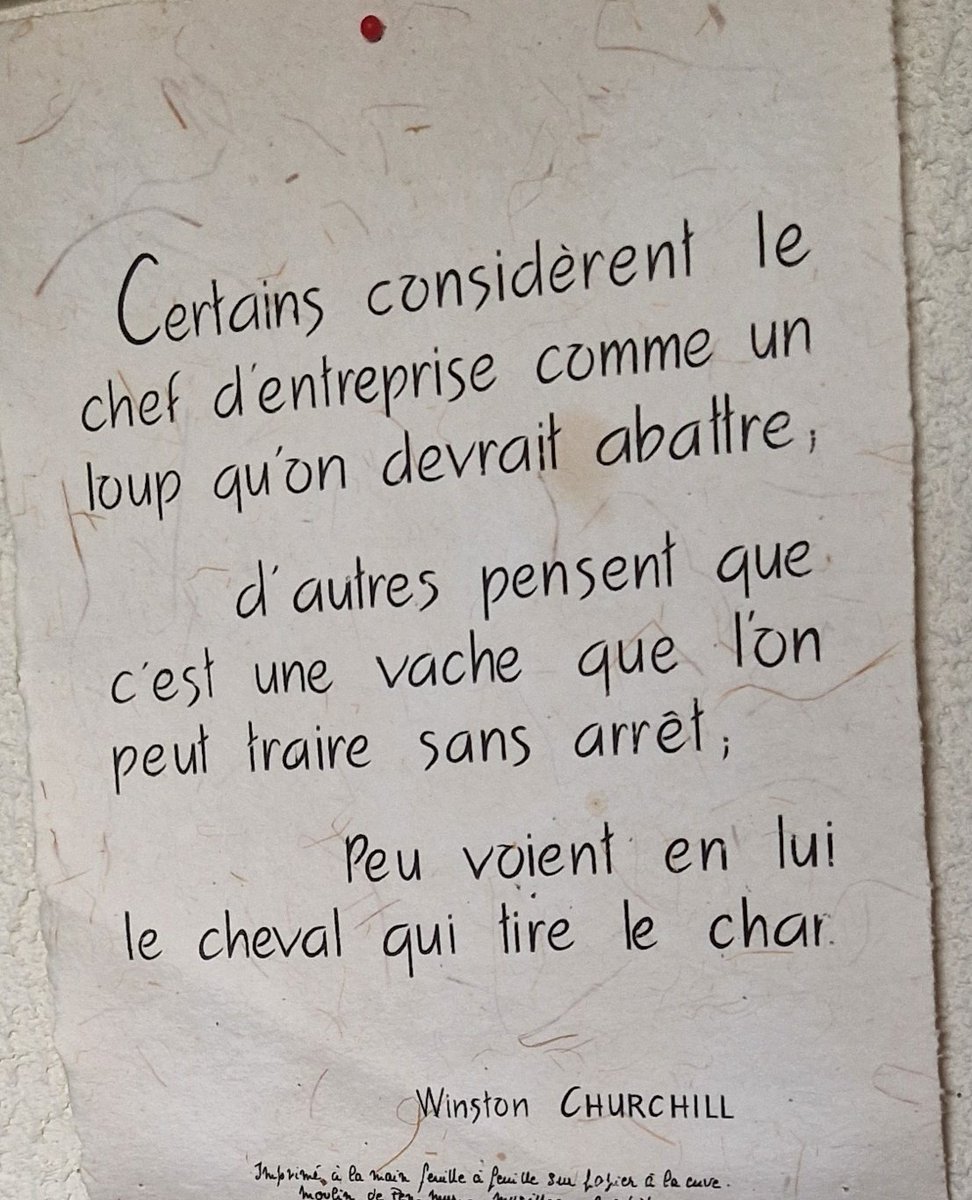 Certains considèrent le
chef d'entreprise comme un
loup qu'on devrait abattre;
d'autres pensent que
c'est une vache que l'on
peut traire sans arrêt;
Peu voient en lui
le cheval qui tire le char.
Winston CHURCHILL
Imprimé à la main feuille à feuille sur papier à la cuve.
moulin de Pen-mur